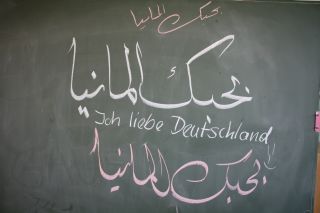 بحبك المانيا
بحبك المانيا
Ich liebe Deutschland!
بحبك المانيا